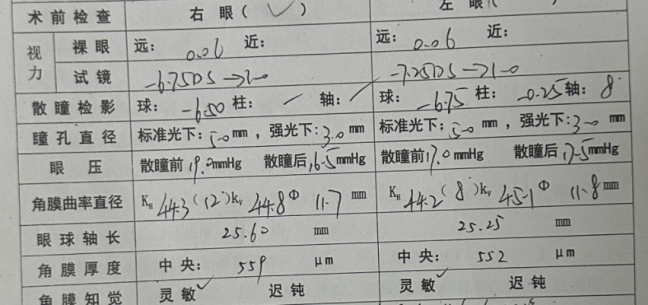 术前检查 右眼(✓) 左眼(
视力 裸眼 远: 0.06 近: 远: 0.06 近:
试镜 -6.75DS→1.0 -7.25DS→1.0
散瞳检影 球: -6.50 柱: / 轴: / 球: -6.75 柱: -0.25 轴: 8
瞳孔直径 标准光下: 5.0 mm, 强光下: 3.0 mm 标准光下: 5.0 mm, 强光下: 3.0 mm
眼压 散瞳前 19.0 mmHg 散瞳后 16.5 mmHg 散瞳前 17.0 mmHg 散瞳后 17.5 mmHg
角膜曲率直径 KH 44.3 (12) kV 44.8 Φ 11.7 mm KH 44.2 (8) kV 45.1 Φ 11.8 mm
眼球轴长 25.60 mm 25.25 mm
角膜厚度 中央: 559 μm 中央: 552 μm
角膜知觉 灵敏✓ 迟钝 灵敏✓ 迟钝